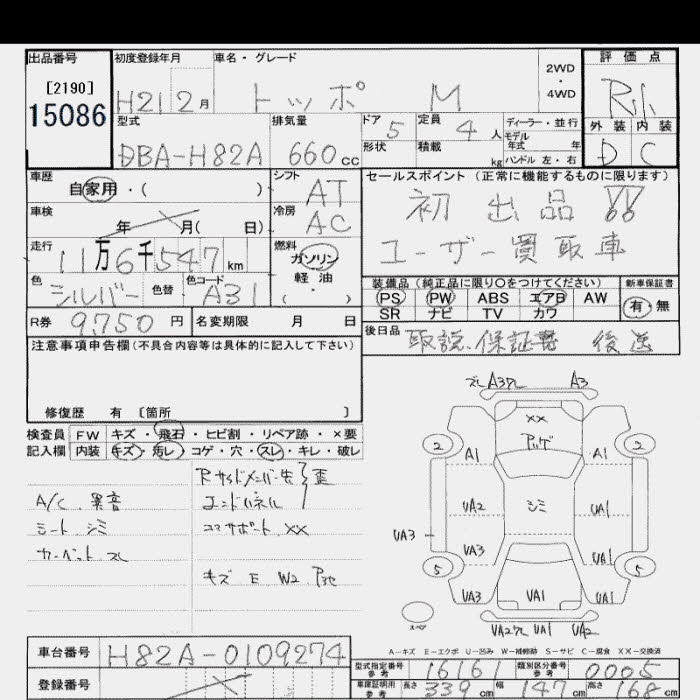 出品番号 初度登録年月 車名・グレード 評価点
[2190]
15086
H21 2月 トッポ M 2WD・4WD
型式 排気量 ドア 定員 ディーラー・並行 外装 内装
DBA-H82A 660cc 5 4人 モデル年式 年 D C
形状 積載 kg ハンドル 左・右
車歴 シフト セールスポイント(正常に機能するものに限ります)
自家用・( ) AT 初出品!!
車検 冷房
年 月( 日) AC ユーザー買取車
走行 燃料
11万6千547km ガソリン
軽油
・
( )
色 色替 色コード 装備品(純正品に限り○をつけてください) 新車保証書
シルバー A31 PS PW ABS エアB AW 有・無
SR ナビ TV カワ
R券 9,750円 名変期限 月 日 後日品 取説.保証書 後送
注意事項申告欄(不具合内容等は具体的に記入して下さい)
修復歴 有 〔箇所 〕
検査員記入欄 FW キズ・飛石・ヒビ割・リペア跡・×要
内装 キズ・汚レ・コゲ・穴・スレ・キレ・破レ
A/C 異音
シート シミ
カーペット スレ
Rサイドメンバー先 歪
エンドパネル
コアサポート XX
キズ E W2 P他
A3 A3
XX
2 アッゲ 2
A1 A1
UA2 シミ UA1
UA3 UA3 UA1
5 5
UA3 UA1 UA1
UA1 UA2
スペア
A-キズ E-エクボ U-凹み W-補修跡 S-サビ C-腐食 XX-交換済
車台番号 H82A-0109274
登録番号
型式指定番号 参考 16161 類別区分番号 参考 0005
車庫証明用 参考 長さ 339cm 幅 147cm 高さ 168cm